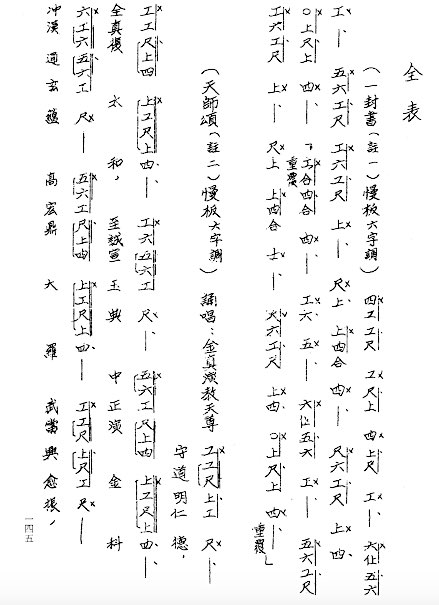 全表
（一封書（註一）慢板六字調） 四工工尺 工尺上 四上尺 工、 六仩五六
工— 五六工尺 工六工尺 上— 尺上 上四合 四— 尺六工尺 上 四
〇上尺上 四— 「工合四合 四— 工六 五— 六仩五六 工— 五六工尺
重覆
工六工尺 上— 尺上 上四合 士— 六工尺 上四 〇上尺上 四—」
重覆
（天師頌（註二）慢板六字調） 誦唱：金真演教天尊 工工尺上工 尺—
守道明仁德，
工工尺上四 上工尺上四— 工六五六工 尺— 五六工尺上四 上工尺上四—
全真復太和， 至誠宣玉典 中正演金科
六工六五六工 尺— 五六工尺上四 上工尺上四— 工工尺上尺工尺—
冲漠通玄蘊 高宏鼎大羅 武當興愈振，
一四五